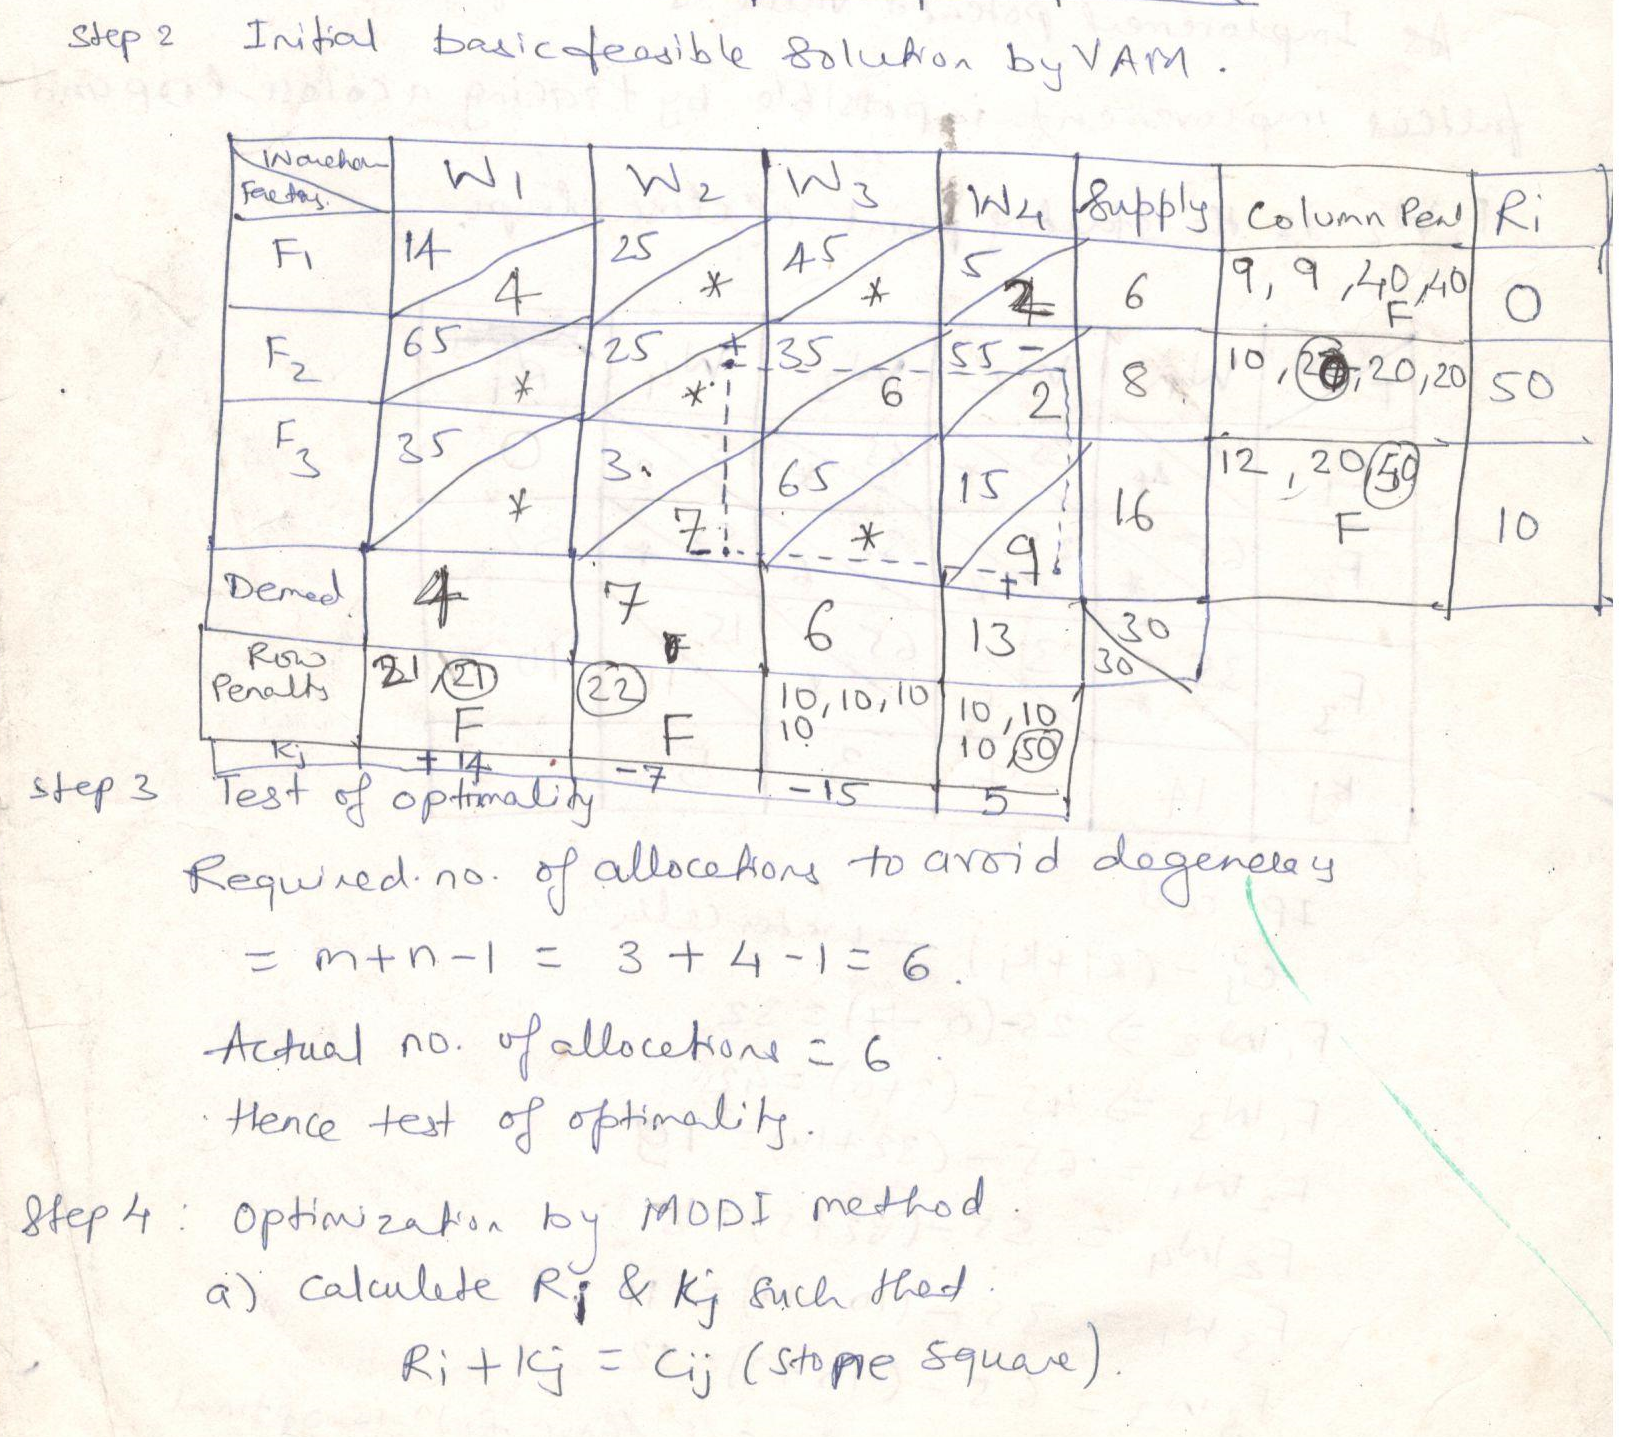 Step 2 Initial basic feasible solution by VAM.
W1 W2 W3 W4 Supply Column Pen Ri
F1 14 4 25 * 45 * 5 2 6 9, 9, 40, 40 F 0
F2 65 * 25 * + 35 6 55 - 2 8 10, 20, 20, 20 50
F3 35 * 3. 7 - 65 * 15 9 + 16 12, 20 50 F 10
Demad. 4 7 6 13 30 30
Row Penalts 21, 21 F 22 F 10, 10, 10 10 10, 10 10, 50
Kj +14 -7 -15 5
Step 3 Test of optimality
Required no. of allocations to avoid degeneracy
= m+n-1 = 3 + 4 - 1 = 6.
Actual no. of allocations = 6.
Hence test of optimality.
Step 4: Optimization by MODI method.
a) Calculate Rj & Kj such that.
Ri + Kj = Cij (Stone Square).